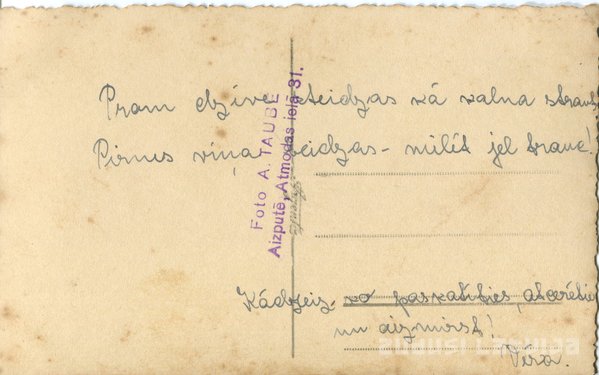 Pram dzīve steidzas kā kalna strauts
Pirms viņa beidzas - mīlēt jel trauc!
Foto A. TAUBE
Aizputē, Atmodas ielā 31.
Kādreiz, ko paskatīties, atcerēties
un aizmirst!
Vera.